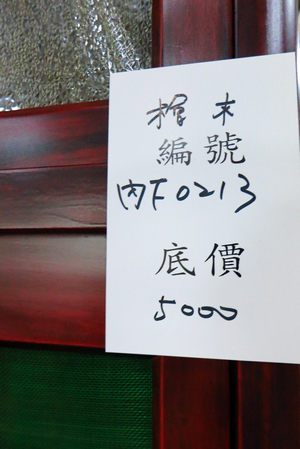 檜木
編號
內F0213
底價
5000